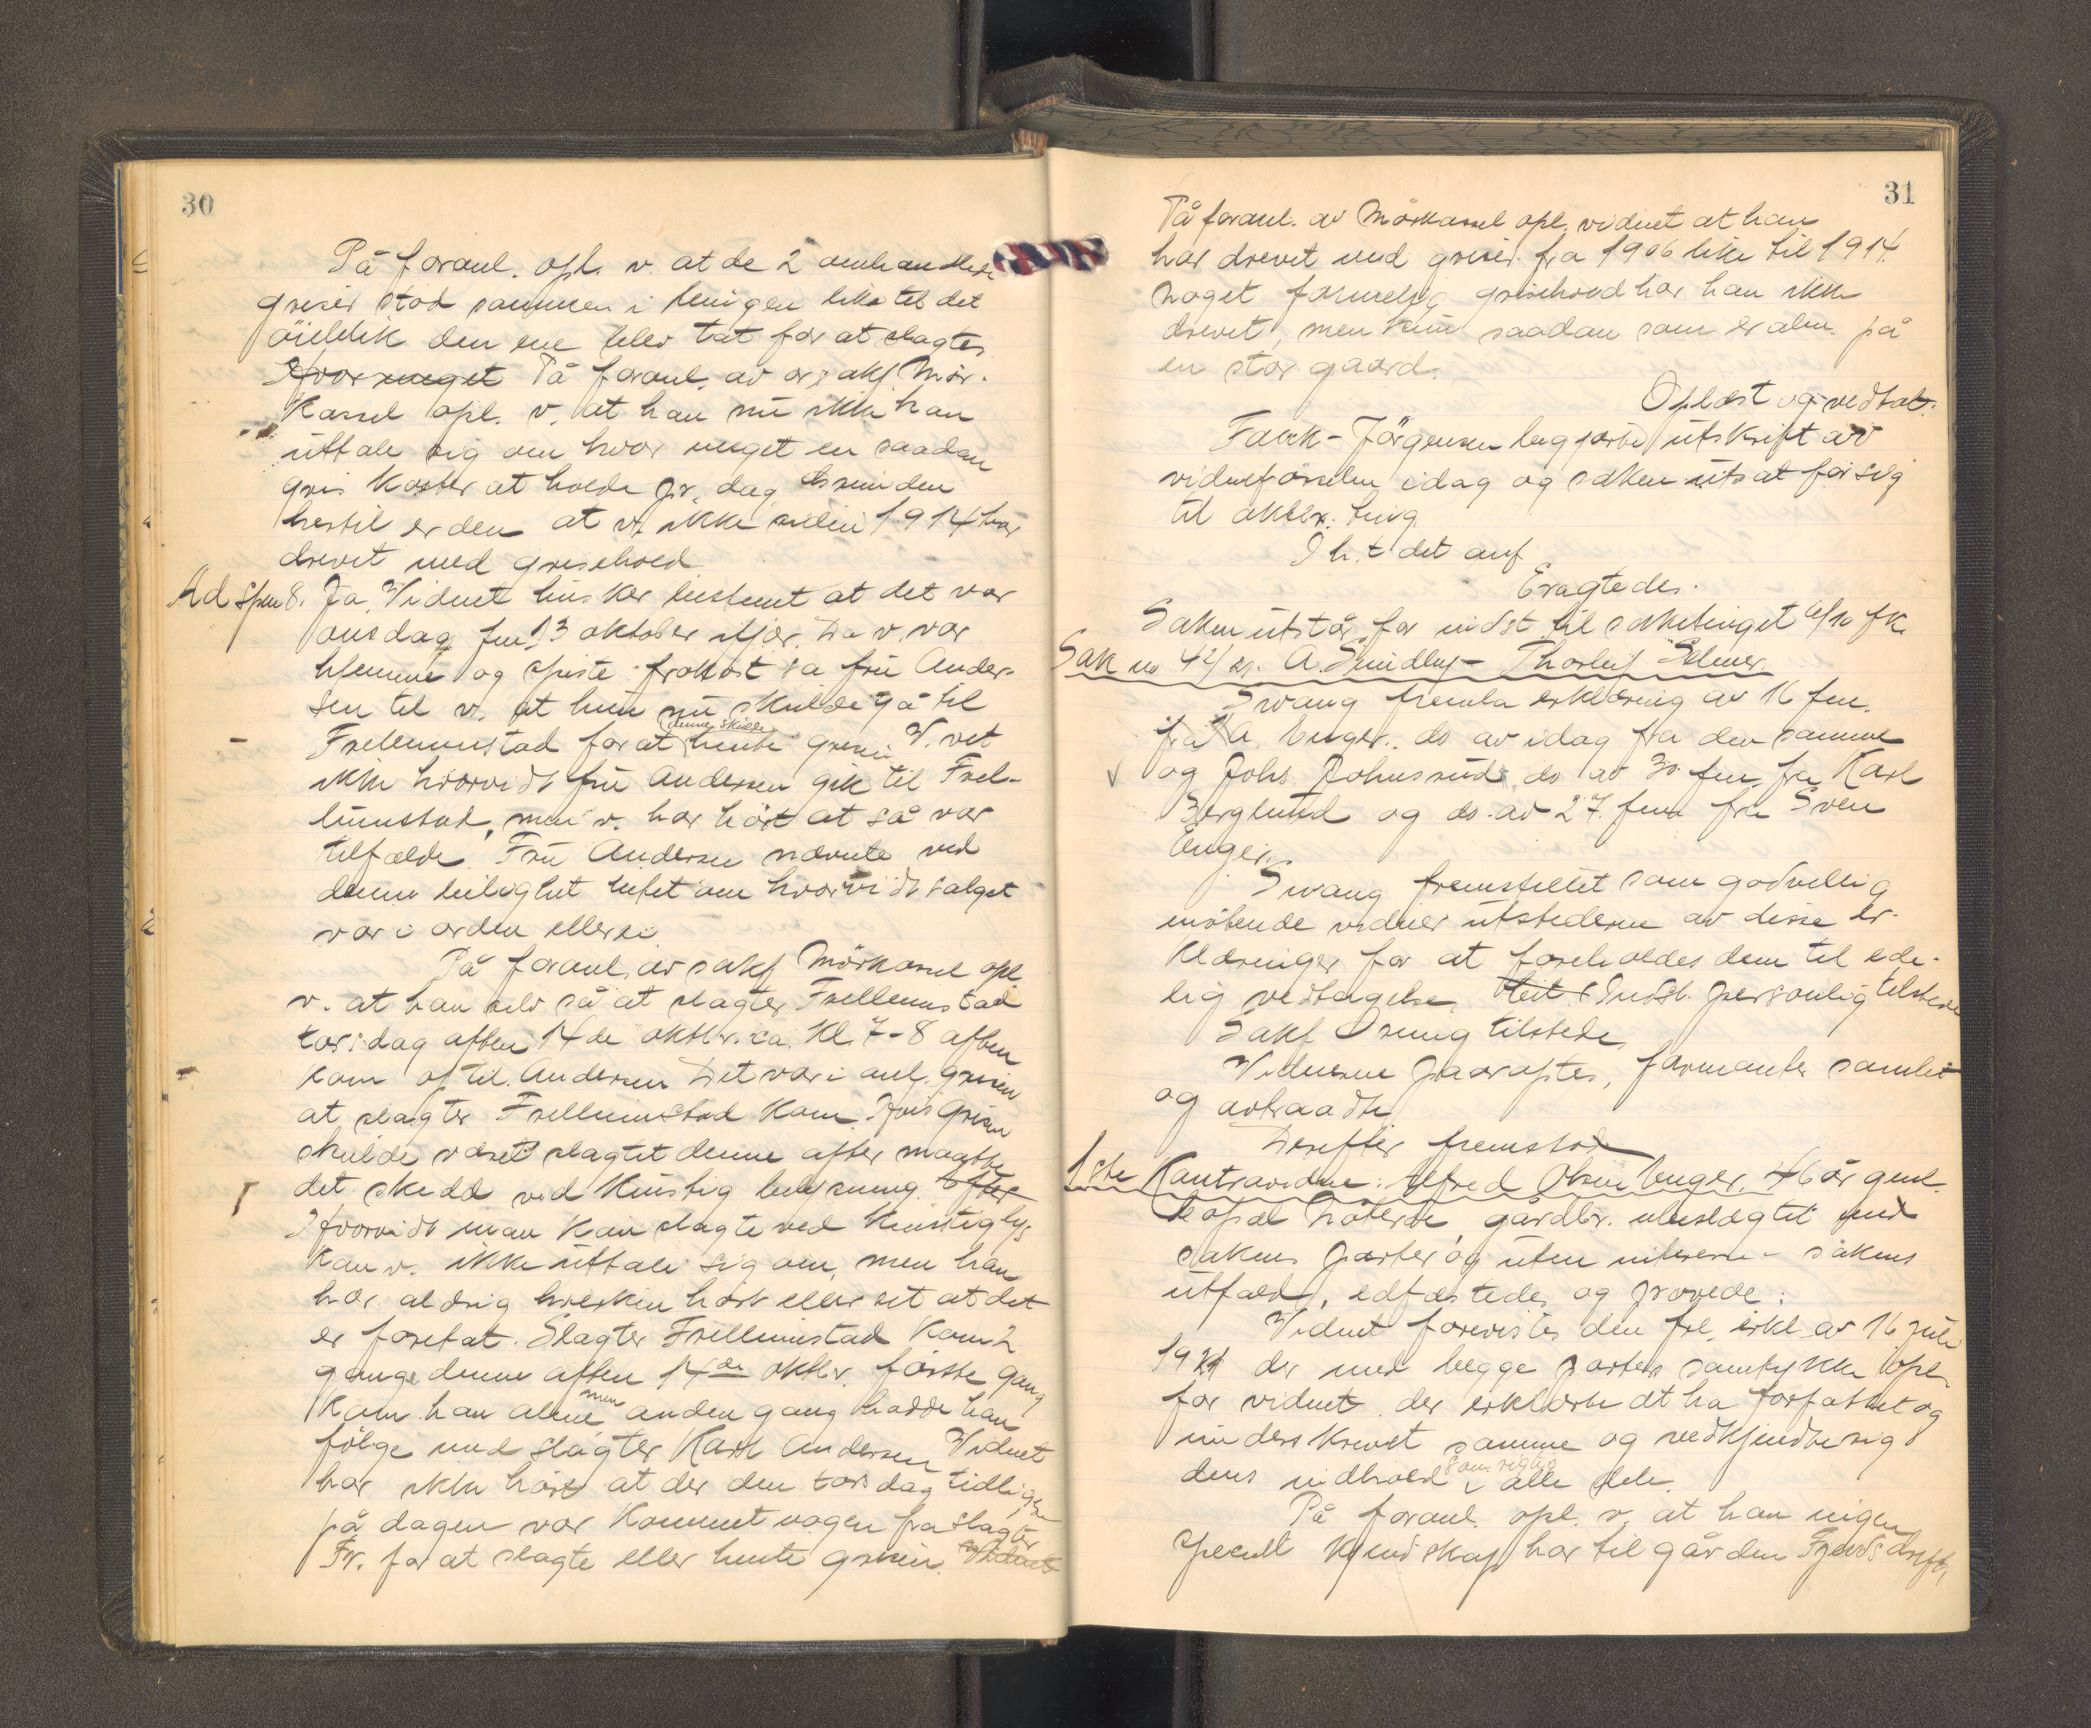 30
På foranl. opl. v. at de 2 omhandlede
griser stod sammen i bingen like til det
öieblik den ene blev tat for at slagtes
Hvor meget På foranl. av orsakf. Mör-
kassel opl. v. at han nu ikke kan
uttale sig om hvor meget en saadan
gris koster at holde pr. dag Grunden
hertil er den at v. ikke siden 1914 har
drevet med grisehold
Ad Spm 8. Ja, Vidnet husker bestemt at det var
onsdag den 13 oktober ifjor. Da v. var
hjemme og spiste frokost sa fru Ander-
sen til v. at hun nu skulde gå til
Frellumstad for at denne skulde hente grisen V. vet
ikke hvorvidt fru Andersen gik til Frel-
lumstad, men v. har hört at så var
tilfælde. Fru Andersen nævnte ved
denne leilighet intet om hvorvidt salget
var i orden eller ei
På foranl. av sakf Mörkassel opl
v. at han selv så at slagter Frellumstad
torsdag aften 14de oktbr. ca. Kl. 7-8 aften
kom op til Andersen Det var i anl. grisen
at slagter Frellumstad kom. Hvis grisen
skulde været slagtet denne aften maatte
det skedd ved kunstig belysning. Efter
Hvorvidt man kan slagte ved kunstig lys
kan v. ikke uttale sig om, men han
har aldrig hverken hört eller set at det
er foretat. Slagter Frellumstad kom 2
gange denne aften 14de oktbr. förste gang
kom han alene men anden gang hadde han
fölge med slagter Karl Andersen Vidnet
har ikke hört at der den torsdag tidligere
på dagen var kommet vogn fra slagter
Fr. for at slagte eller hente grisen. Vidnet
31
På foranl. av Mörkassel opl. vidnet at han
har drevet med griser fra 1906 like til 1914.
Noget formelig grisehold har han ikke
drevet, men kun saadan som er alm. på
en stor gaard.
Oplæst og vedtat.
Fauck-Jörgensen begjærte utskrift av
vidneförselen idag og saken utsat for sig
til oktbr. ting.
I h. t det anf
Eragtedes.
Saken utstår for indst. til saketinget 6/10 fk.
Sak no 42/21. A. Smidby - Thorleif Selmer
Swang fremla erklæring av 16 fm.
fra A. Enger. do av idag fra den samme
og Johs Johnsrud, do av 30. fm. fra Karl
Berglund og do. av 27. fm fra Sven
Enger.
Swang fremstillet som godvillig
mötende vidner utstederne av disse er-
klæringer for at foreholdes dem til ede-
lig vedtagelse. Indst. personlig tilstede
Sakf Orning tilstede
Vidnerne paaroptes, formantes samlet
og avtraadte
Derefter fremstod
1ste Kontravidne: Alfred Olsen Enger, 46 år gml.
bopæl Nöterö, gårdbr. ubeslægtet med
sakens parter og uten interesse i sakens
utfald, edfæstedes og provede:
Vidnet forevistes den frl. erkl. av 16 juli
1921 der med begge parters samtykke opl.
for vidnet der erklærte at ha forfattet og
underskrevet samme og vedkjendte sig
dens indhold som rigtig i alle dele.
På foranl. opl. v. at han ingen
speciell kjendskap har til gården Fjerds drift,